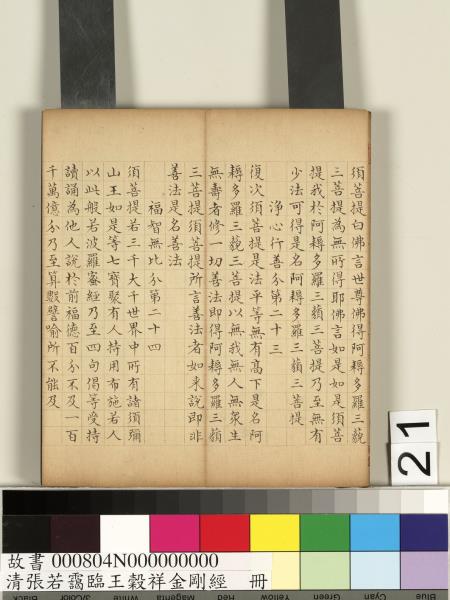 須菩提白佛言世尊佛得阿耨多羅三藐
三菩提為無所得耶佛言如是如是須菩
提我於阿耨多羅三藐三菩提乃至無有
少法可得是名阿耨多羅三藐三菩提
淨心行善分第二十三
復次須菩提是法平等無有高下是名阿
耨多羅三藐三菩提以無我無人無衆生
無壽者修一切善法即得阿耨多羅三藐
三菩提須菩提所言善法者如來說即非
善法是名善法
福智無比分第二十四
須菩提若三千大千世界中所有諸須彌
山王如是等七寶聚有人持用布施若人
以此般若波羅蜜經乃至四句偈等受持
讀誦為他人說於前福德百分不及一百
千萬億分乃至算數譬喻所不能及
21
故書 000804N000000000
清張若靄臨王穀祥金剛經 冊
Black 3/Color White Magenta Red Yellow Green Cyan Blue